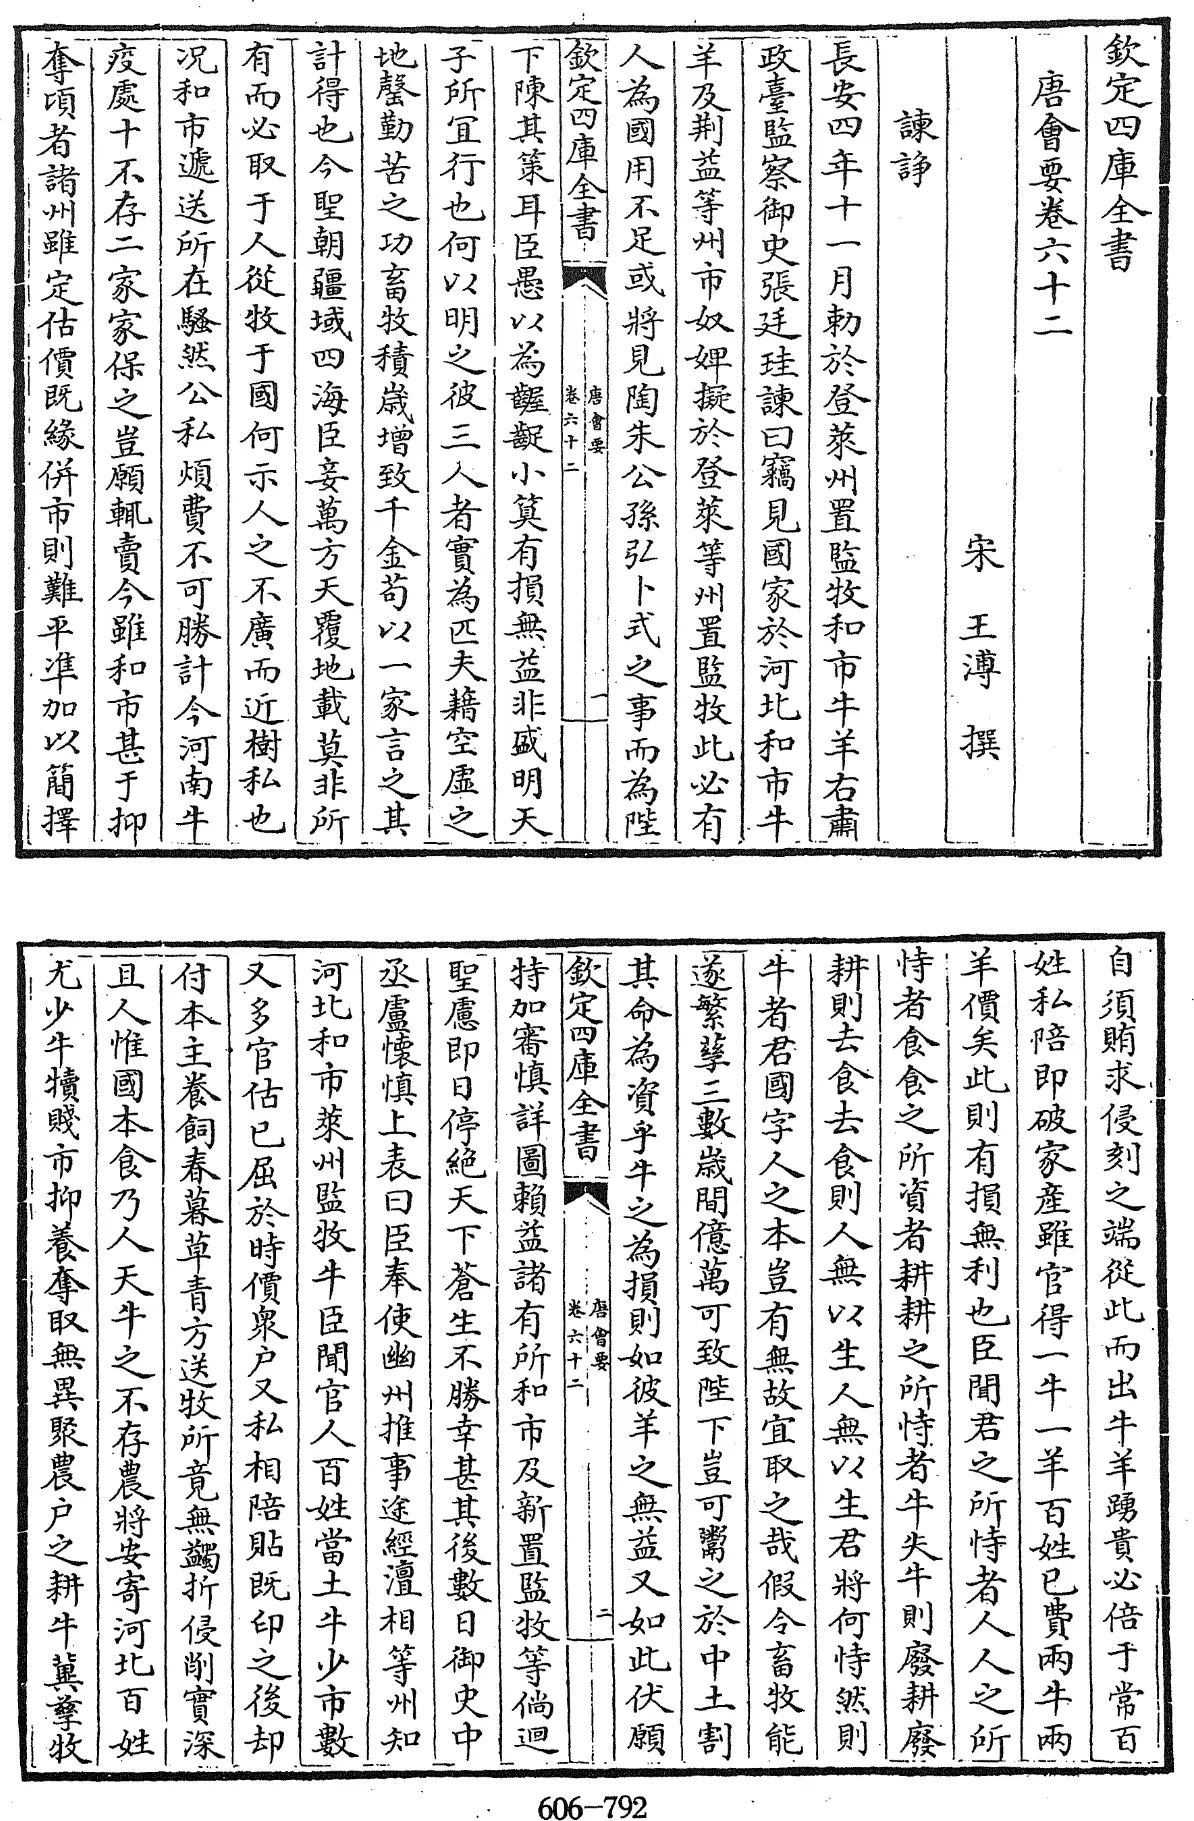 欽定四庫全書
唐會要卷六十二
宋 王溥 撰
諫諍
長安四年十一月勅於登萊州置監牧和市牛羊右肅
政臺監察御史張廷珪諫曰竊見國家於河北和市牛
羊及荆益等州市奴婢擬於登萊等州置監牧此必有
人為國用不足或將見陶朱公孫弘卜式之事而為陛
欽定四庫全書
唐會要
卷六十二
一
下陳其策耳臣愚以為齷齪小筭有損無益非盛明天
子所宜行也何以明之彼三人者實為匹夫藉空虛之
地罄勤苦之功畜牧積歲增致千金苟以一家言之其
計得也今聖朝疆域四海臣妾萬方天覆地載莫非所
有而必取于人從牧于國何示人之不廣而近樹私也
况和市遞送所在騷然公私煩費不可勝計今河南牛
疫處十不存二家家保之豈願輒賣今雖和市甚于抑
奪頃者諸州雖定估價既緣併市則難平準加以簡擇
自須賄求侵刻之端從此而出牛羊踴貴必倍于常百
姓私陪即破家產雖官得一牛一羊百姓已費兩牛兩
羊價矣此則有損無利也臣聞君之所恃者人人之所
恃者食食之所資者耕耕之所恃者牛失牛則廢耕廢
耕則去食去食則人無以生人無以生君將何恃然則
牛者君國字人之本豈有無故宜取之哉假令畜牧能
遂繁孳三數歲間億萬可致陛下豈可鬻之於中土割
其命為資乎牛之為損則如彼羊之無益又如此伏願
欽定四庫全書
唐會要
卷六十二
二
特加審慎詳圖賴益諸有所和市及新置監牧等倘迴
聖慮即日停絶天下蒼生不勝幸甚其後數日御史中
丞盧懷慎上表曰臣奉使幽州推事途經澶相等州知
河北和市萊州監牧牛臣聞官人百姓當土牛少市數
又多官估已屈於時價衆户又私相陪貼既印之後却
付本主養飼春暮草青方送牧所竟無蠲折侵削實深
且人惟國本食乃人天牛之不存農將安寄河北百姓
尤少牛犢賤市抑養奪取無異聚農户之耕牛冀孳牧
606-792